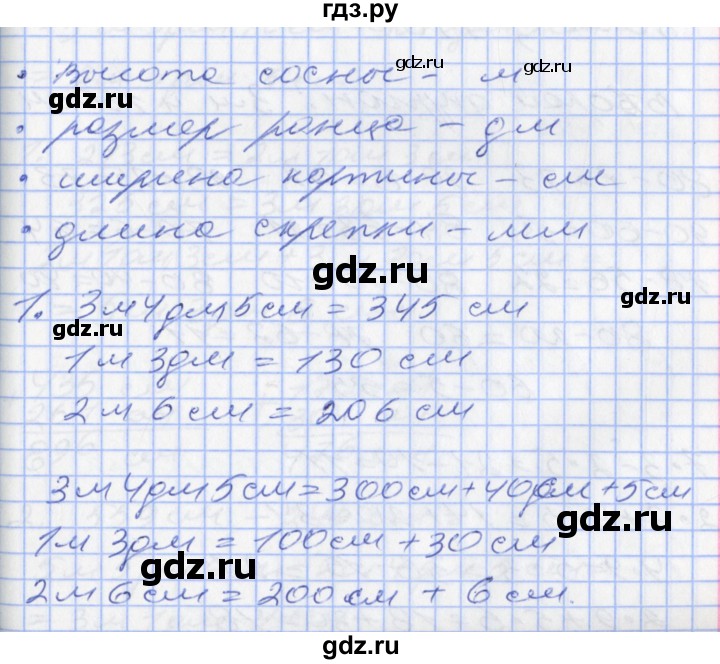 гдз.ру
• высота сосны - м
gdz.ru
gdz.ru
• размер ранца - дм
gdz.ru
• ширина картины - см
• длина скрепки - мм
gdz.ru
1. 3м4дм5см = 345 см
gdz.ru
gdz.ru
1м 3дм = 130 см
2м 6см = 206 см
3м4дм5см=300см+40см+5см
gdz.ru
1м 3дм = 100см +30 см
gdz.ru
2м 6см = 200см + 6см.
gdz.ru
gdz.ru